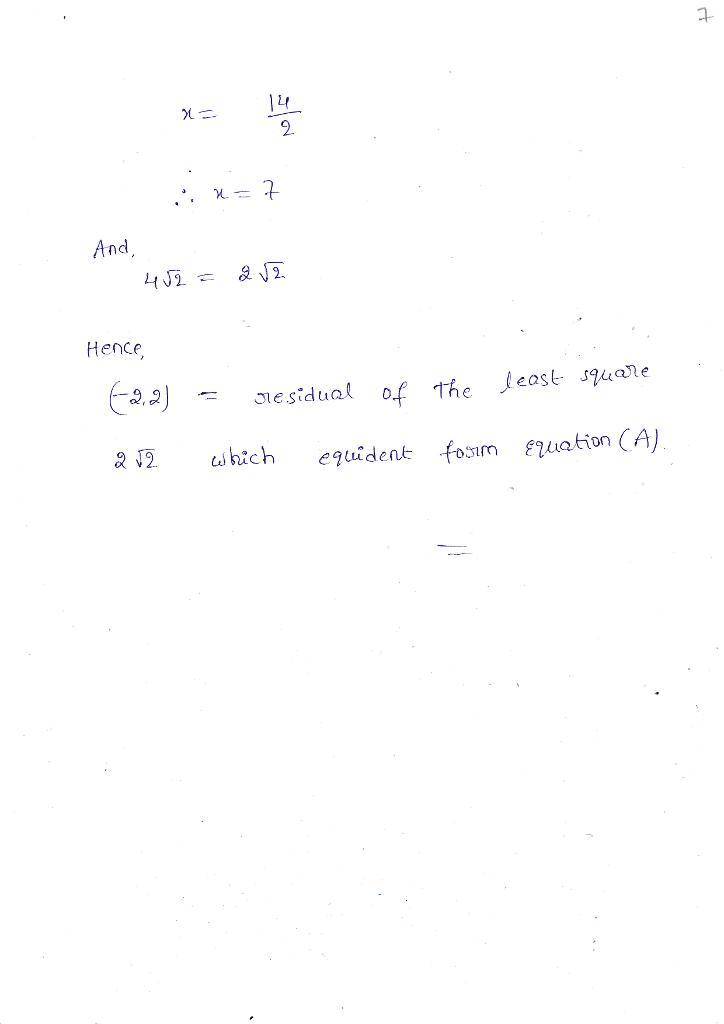 7
x = 14/2
∴ x = 7
And,
4√2 = 2√2
Hence,
(-2,2) = residual of the least square
2√2 which equident form equation (A).